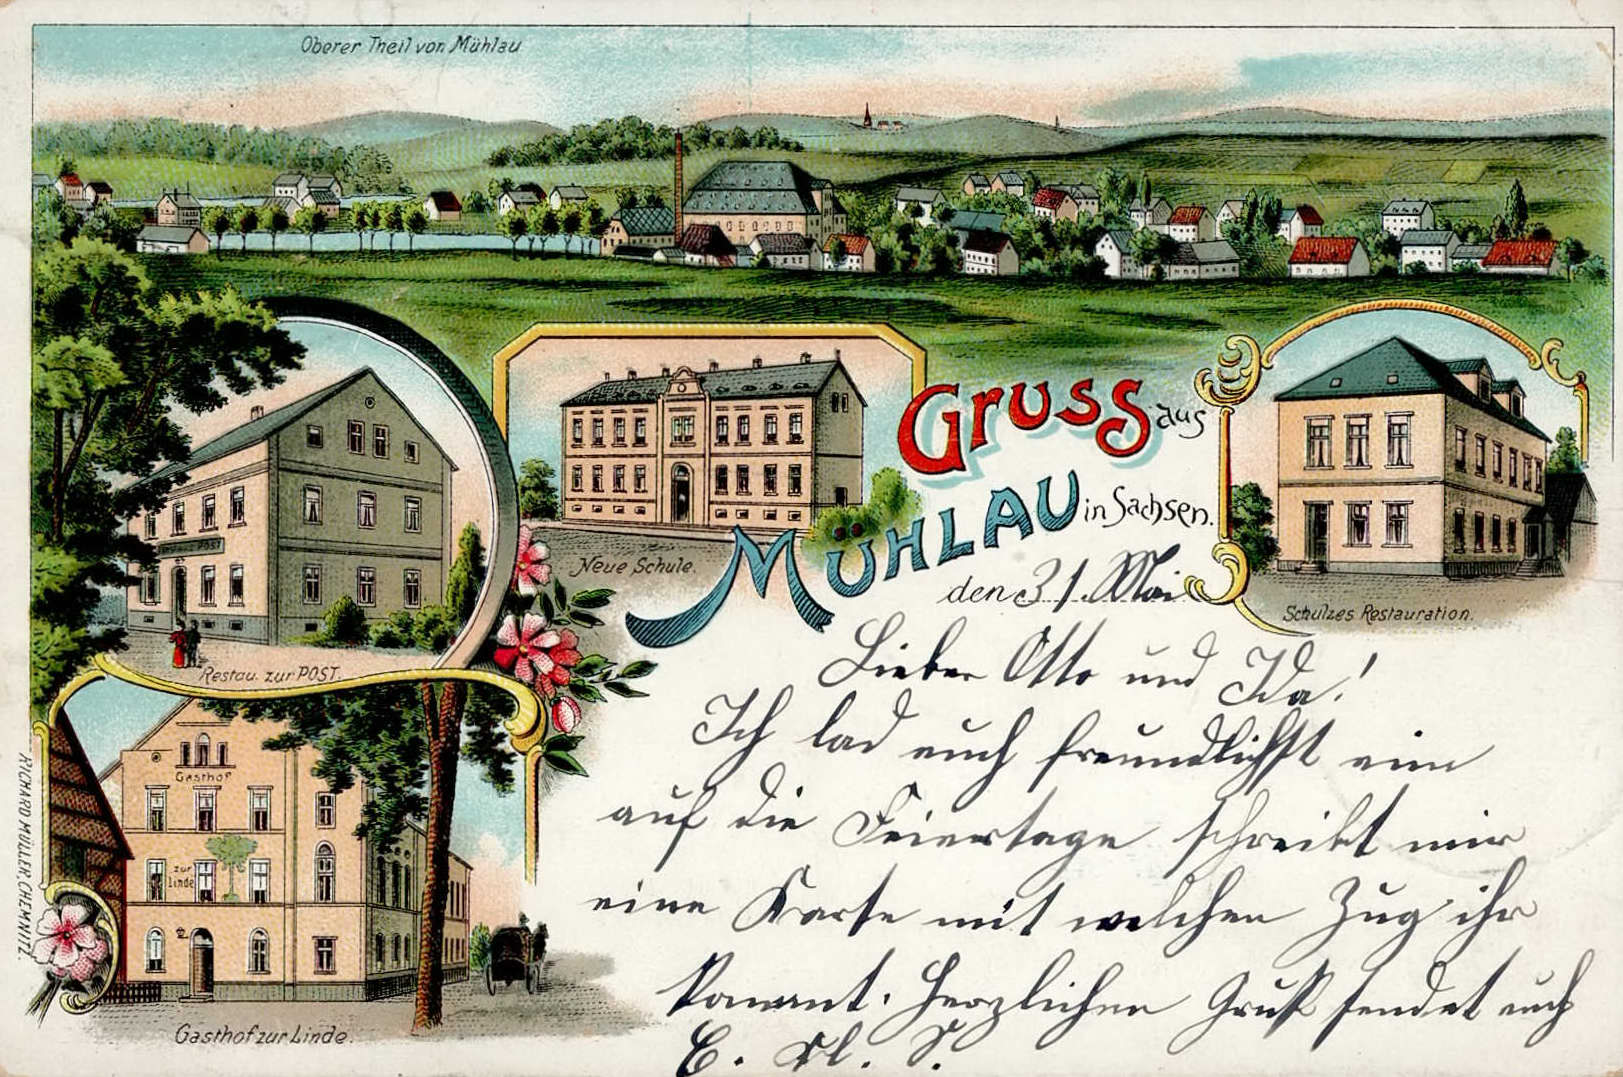 Oberer Theil von Mühlau
Gruss aus
Mühlau in Sachsen.
Neue Schule.
Schulzes Restauration.
POST
Restau. zur POST.
Gasthof
zur
Linde
Gasthof zur Linde.
RICHARD MÜLLER, CHEMNITZ.
den 31. Mai
Lieber Otto und Ida!
Ich lad euch freundlichst ein
auf die Feiertage schreibt mir
eine Karte mit welchen Zug ihr
kommt. Herzlichen Gruß sendet euch
E. Kl. S.